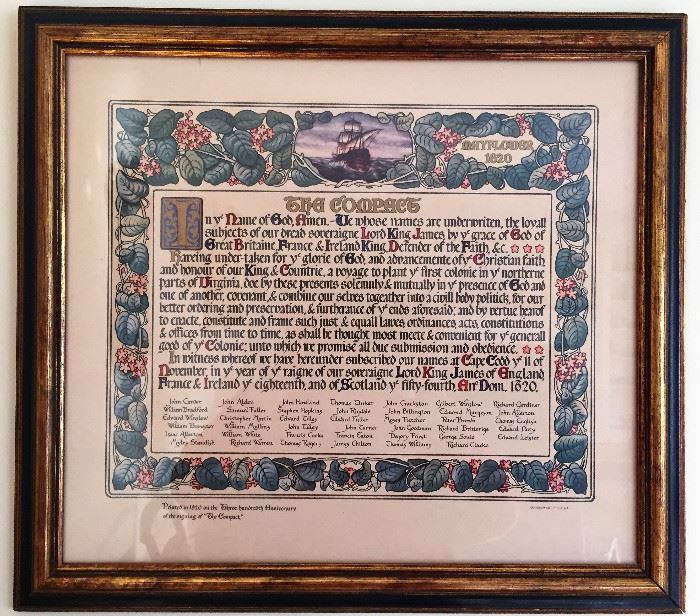 MAYFLOWER
1620
THE COMPACT
In yᵉ Name of God, Amen. We whose names are underwriten, the loyall
subjects of our dread soveraigne Lord King James by yᵉ grace of God of
Great Britaine, France & Ireland King Defender of the Faith, &c.
Haveing under-taken for yᵉ glorie of God, and advancemente of yᵉ Christian faith
and honour of our King & Countrie, a voyage to plant yᵉ first colonie in yᵉ northerne
parts of Virginia, doe by these presents solemnly & mutualy in yᵉ presence of God and
one of another, covenant, & combine our selves togeather into a civill body politick, for our
better ordering and preservation, & furtherance of yᵉ ends aforesaid; and by vertue hearof
to enacte, constitute and frame such just & equall lawes ordinances acts, constitutions
& offices from time to time, as shall be thought most meete & convenient for yᵉ generall
good of yᵉ Colonie; unto which we promise all due submission and obedience.
In witness whereof we have hereunder subscribed our names at Cape Codd yᵉ 11 of
November, in yᵉ year of yᵉ raigne of our soveraigne Lord King James of England
France & Ireland yᵉ eighteenth, and of Scotland yᵉ fifty-fourth, Aᵒ Dom. 1620.
John Carver John Alden John Howland Thomas Tinker John Crackston Gilbert Winslow Richard Gardiner
William Bradford Samuel Fuller Stephen Hopkins John Rigdale John Billington Edmund Margeson John Allerton
Edward Winslow Christopher Martin Edward Tilley Edward Fuller Moses Fletcher Peter Brown Thomas English
William Brewster William Mullins John Tilley John Turner John Goodman Richard Britterige Edward Doty
Isaac Allerton William White Francis Cooke Francis Eaton Degory Priest George Soule Edward Leister
Myles Standish Richard Warren Thomas Rogers James Chilton Thomas Williams Richard Clarke
Printed in 1920 on the Three hundredth Anniversary
of the signing of "The Compact."